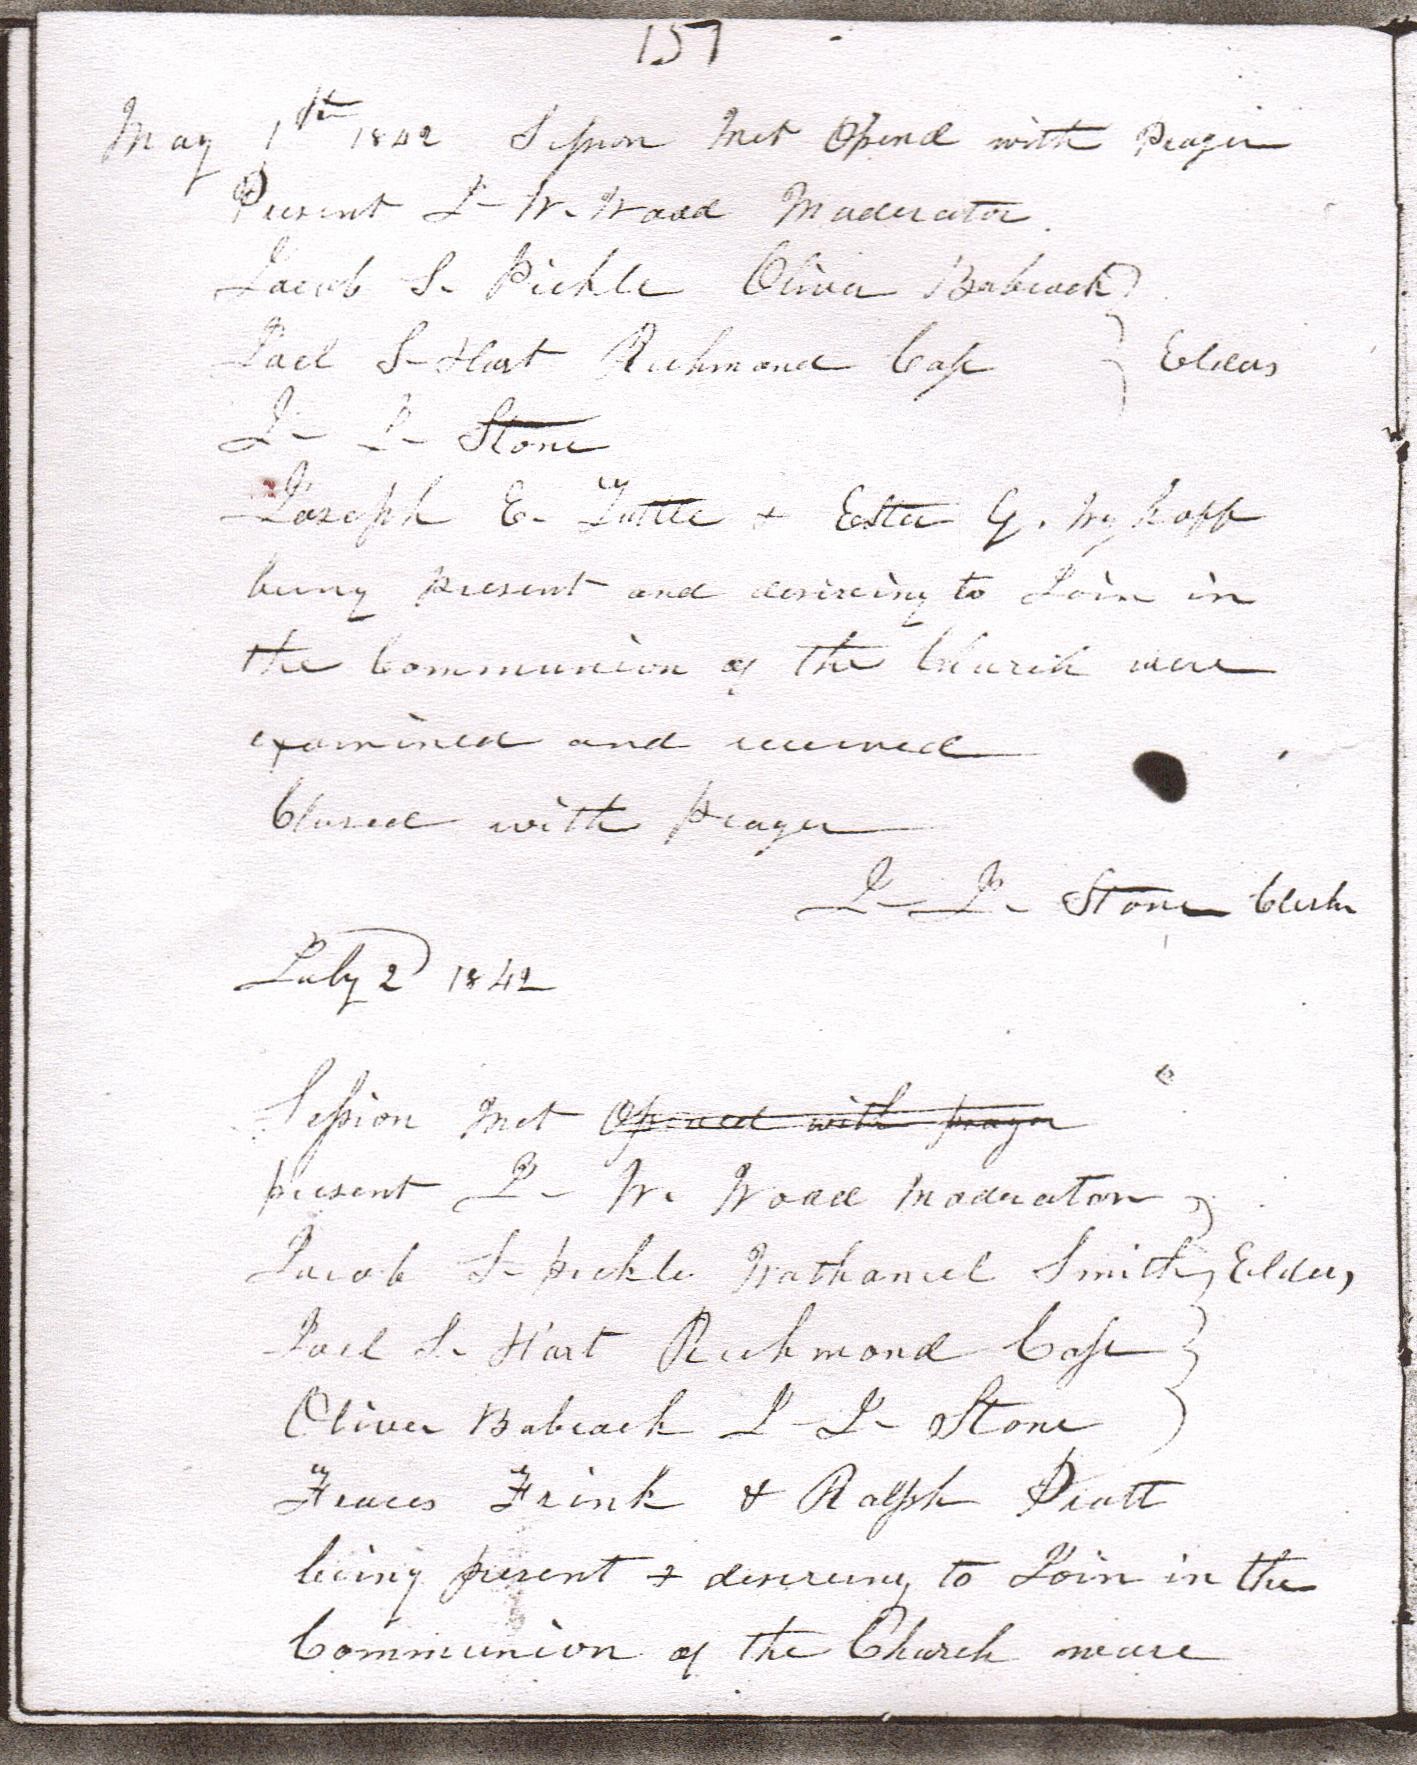 157
May 1th 1842 Session Met Opend with Prayer
Present I- W. Wood Moderator
Jacob S. Pickle Oliver Babcock
Joel S- Hart Richmond Case } Elders
I- I- Stone
Joseph E. Tuttle + Ester G. Wykoff
being present and desireing to Join in
the Communion of the Church were
examined and received
Closed with Prayer
I- I- Stone Clerk
July 2 1842
Session Met Opened with prayer
present I- W. Wood Moderator
Jacob S- pickle Nathaniel Smith, Elders
Joel S. Hart Richmond Case
Oliver Babcock I- I- Stone
Fraces Frink & Ralph Pratt
being present + desireing to Join in the
Communion of the Church weare